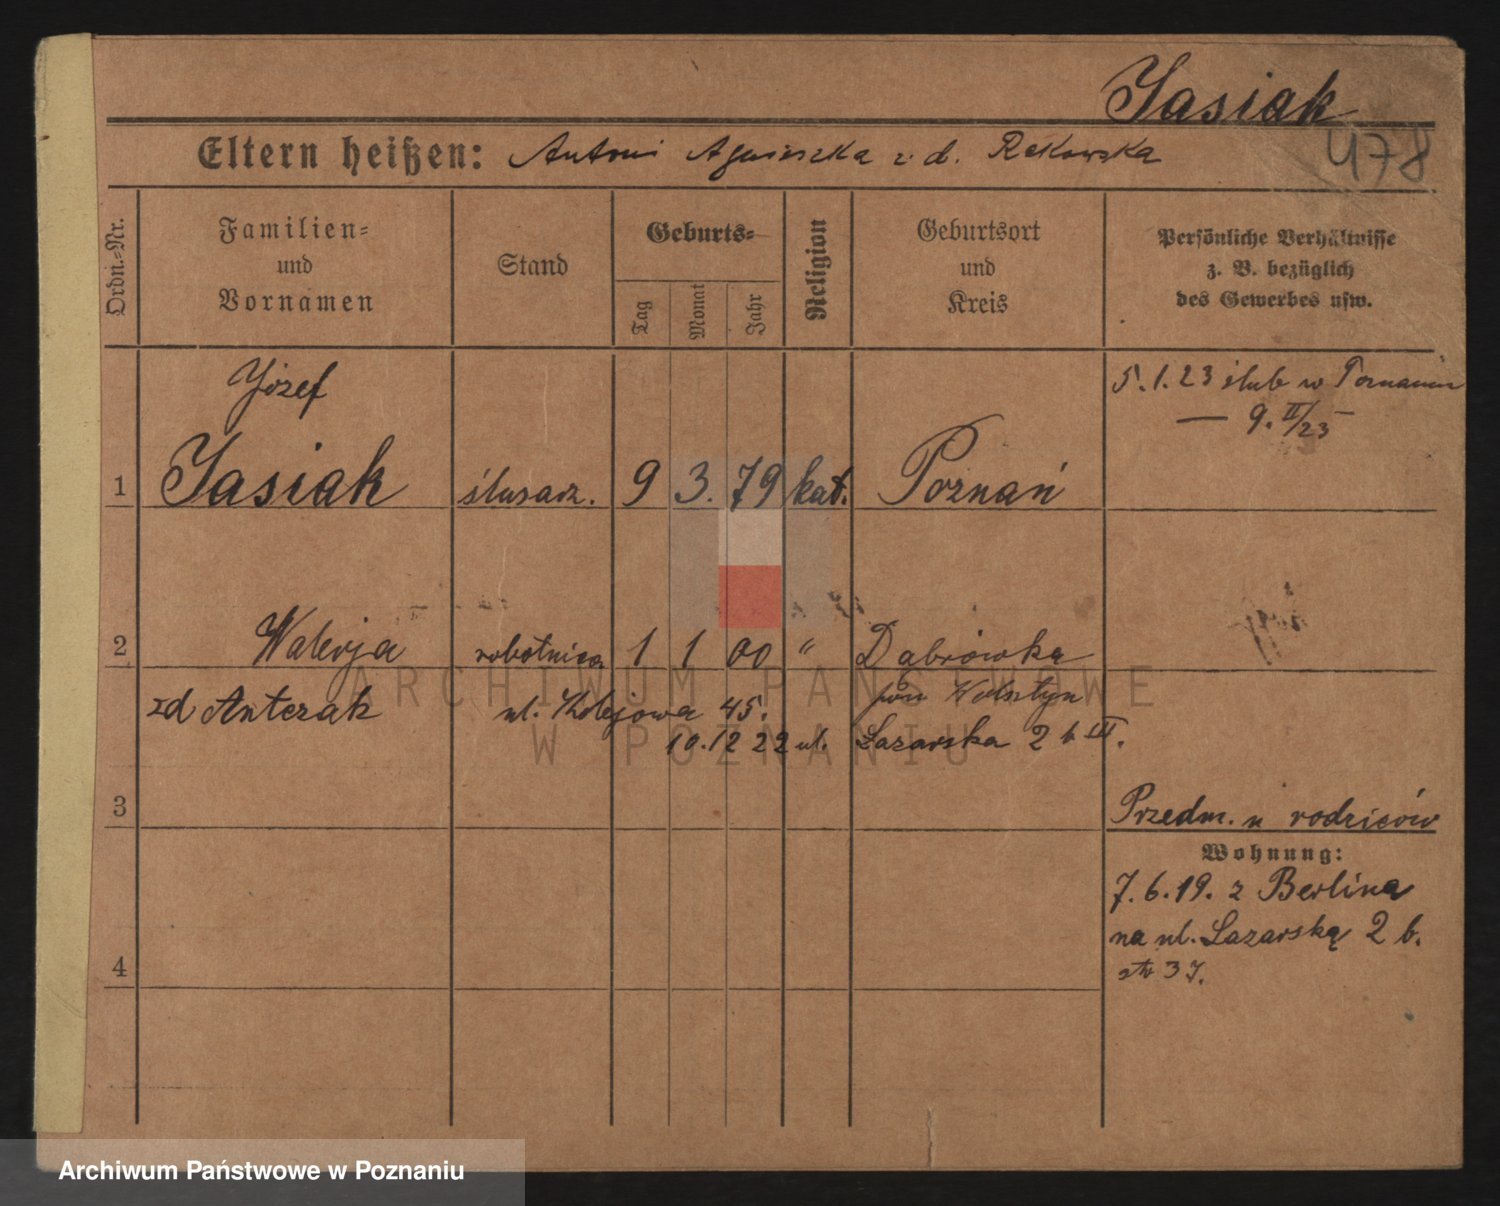 Jasiak
Eltern heißen: Antoni Agnieszka z d. Rakowska
478
Ordn.-Nr.
Familien-
und
Vornamen
Stand
Geburts-
Tag
Monat
Jahr
Religion
Geburtsort
und
Kreis
Persönliche Verhältnisse
z. B. bezüglich
des Gewerbes usw.
Józef
5.1.23 ślub w Poznaniu
— 9.II/23 —
1 Jasiak ślusarz. 9 3. 79 kat. Poznań
2 Walerja robotnica 1 1 00 " Dąbrówka
zd Antczak ul. Kolejowa 45. pow Wolsztyn
10.12 22 ul. Łazarska 2 b III.
3
Przedm. u rodziców
Wohnung:
7.6.19. z Berlina
na ul. Łazarską 2 b.
4
37.
ARCHIWUM PAŃSTWOWE
W POZNANIU
Archiwum Państwowe w Poznaniu